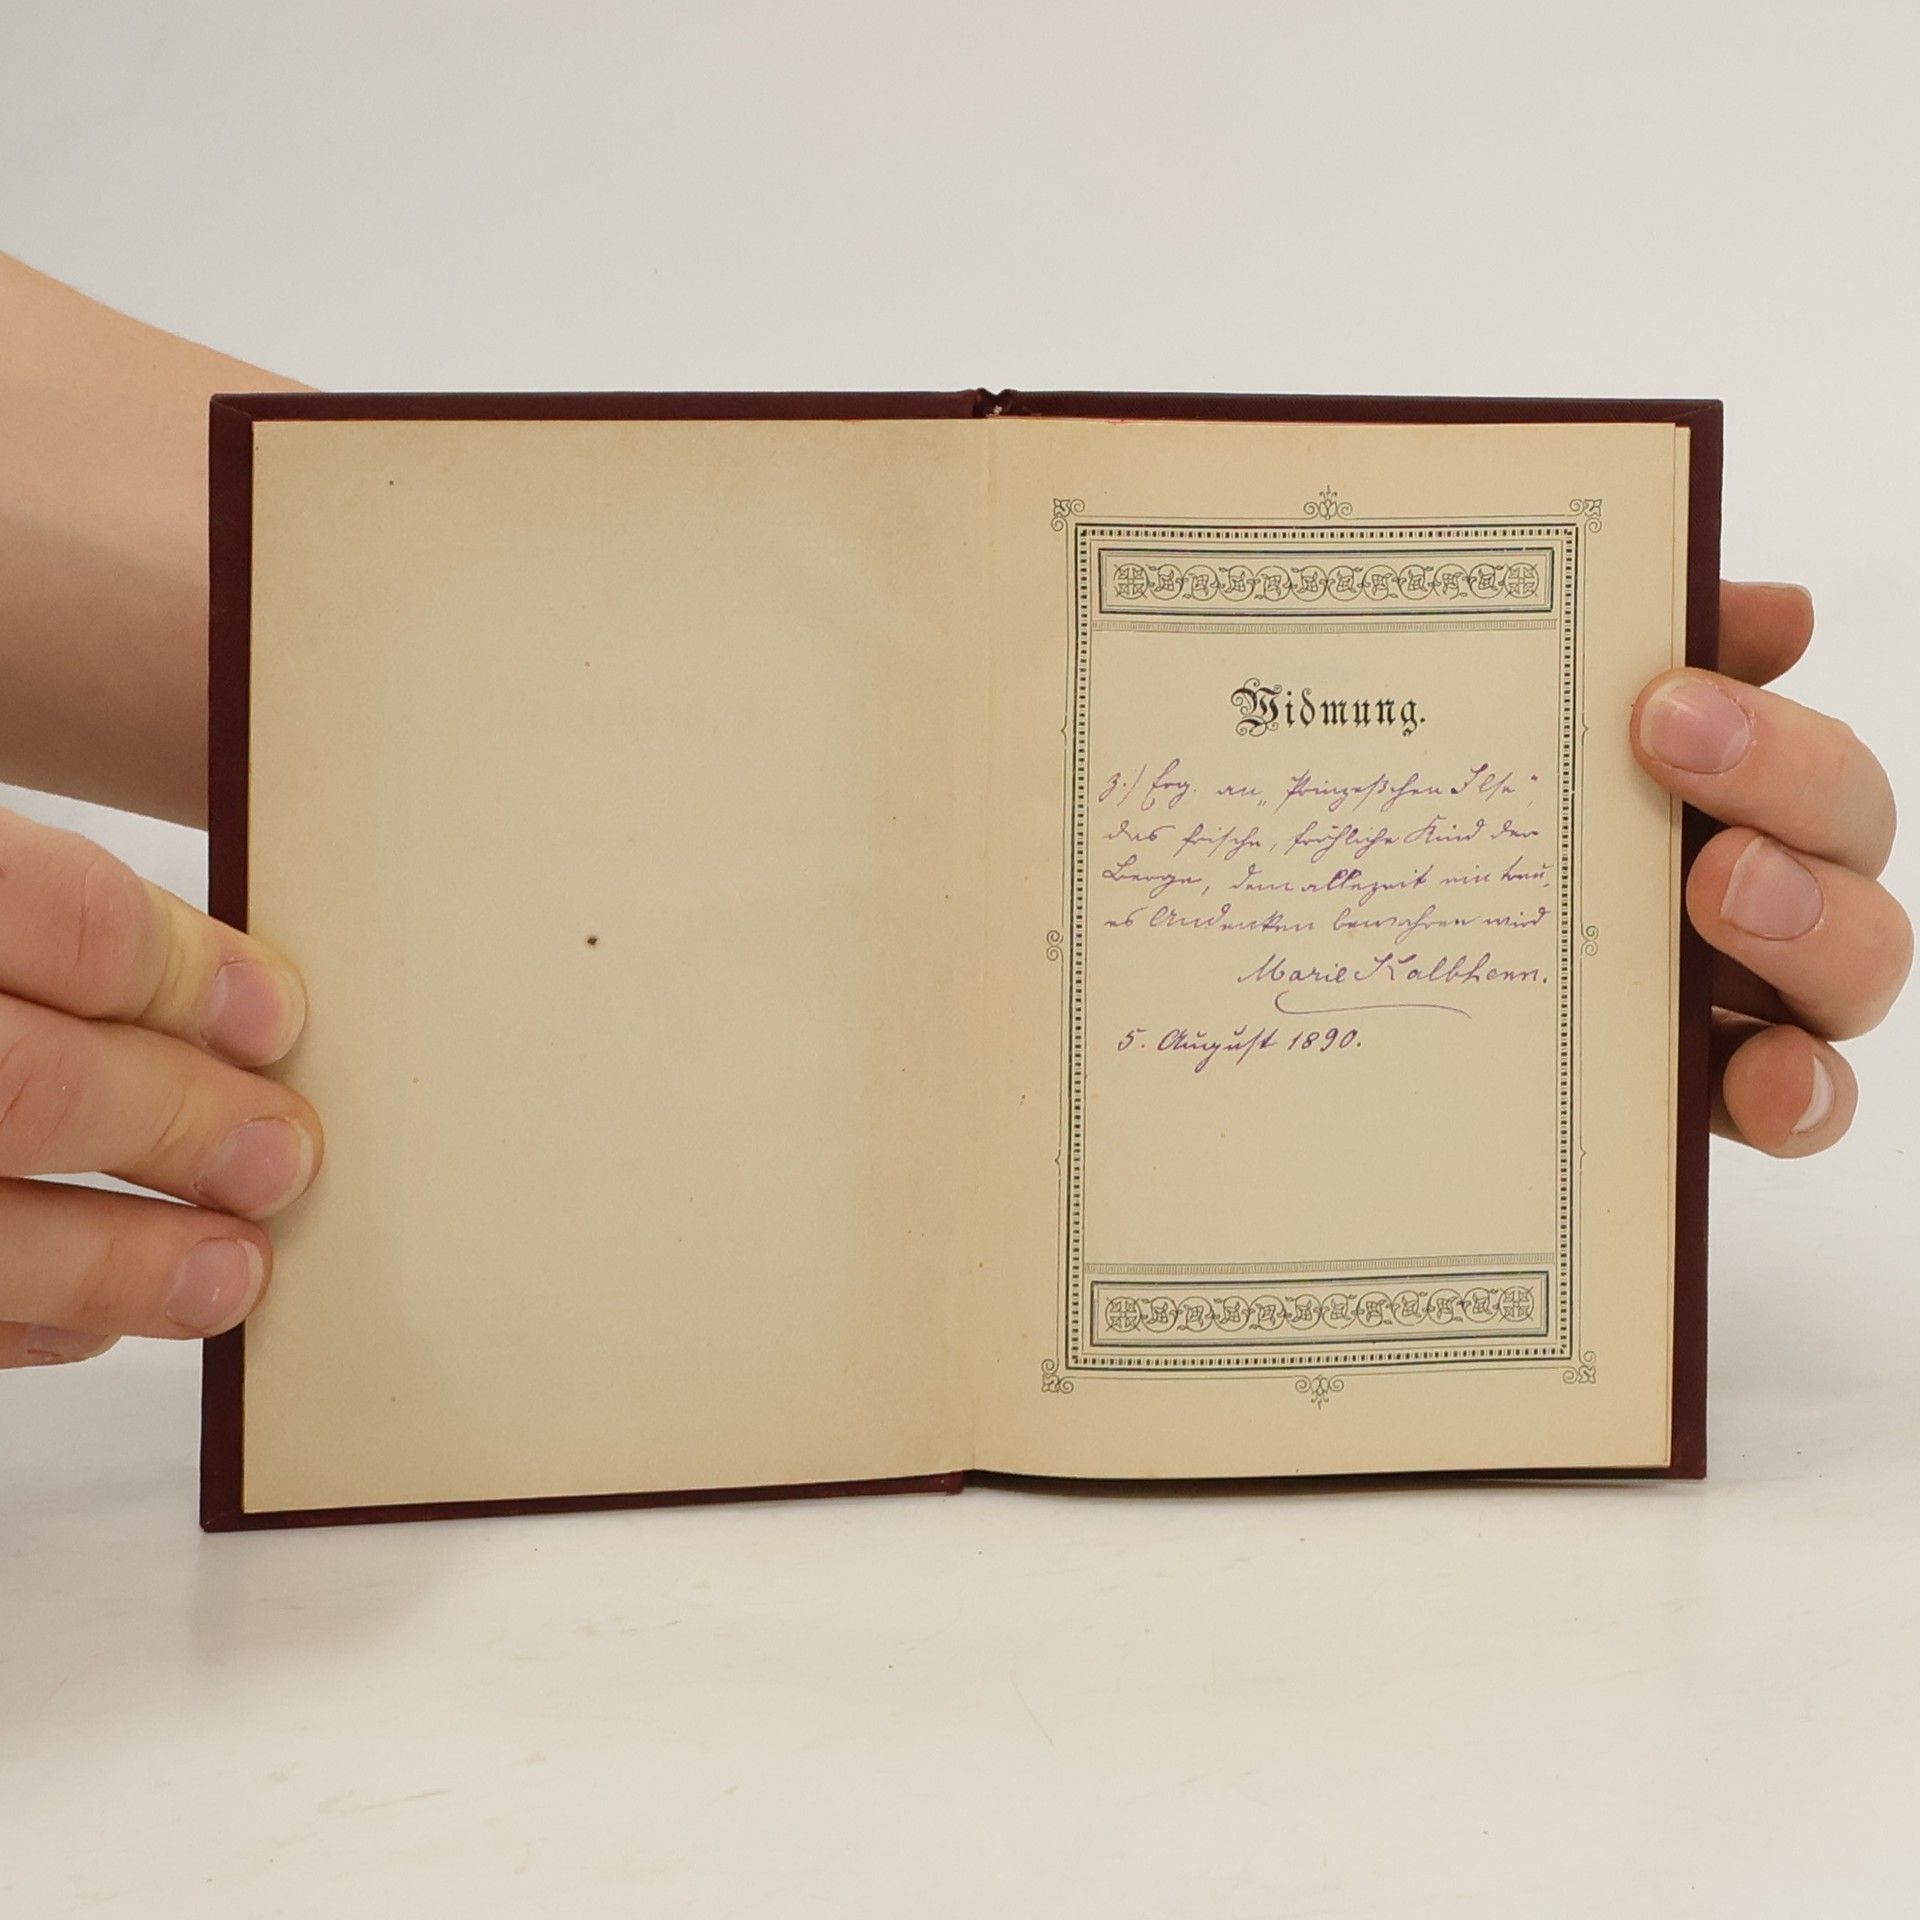 Widmung.
z.) Erg. an „Prinzeßchen Ilse“,
das frische, fröhliche Kind der
Berge, dem allezeit ein treu-
es Andenken bewahren wird
Marie Kalbhenn.
5. August 1890.